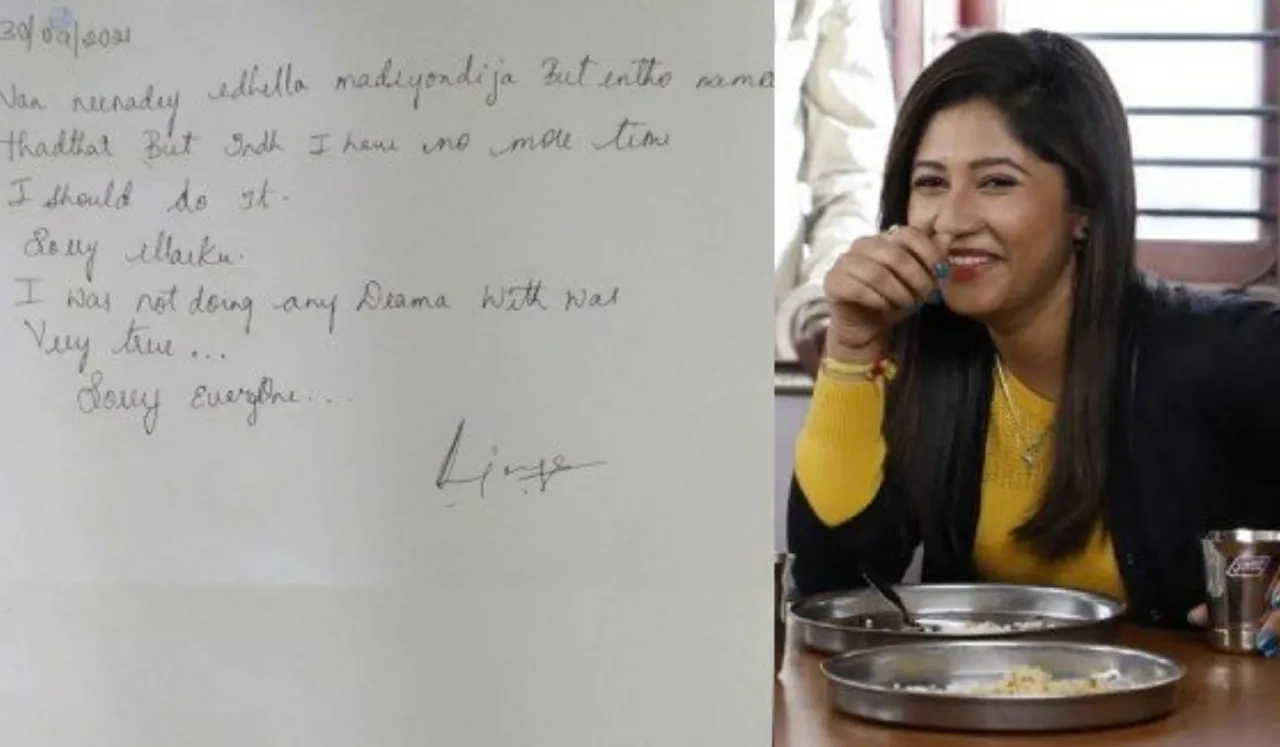 30/09/2021
Nan neenadey edhella madiyondija But entho nema
thadthat But Indh I have no more time
I should do It.
Sorry Marku.
I was not doing any Drama With was
Very true...
Sorry EveryOne...